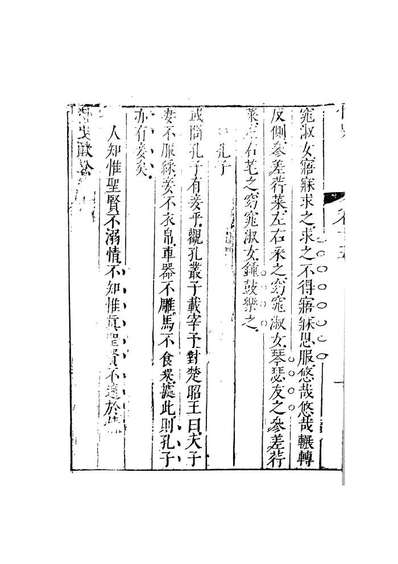 窕淑女寤寐求之求之不得寤寐思服悠哉悠哉輾轉
反側參差荇菜左右采之窈窕淑女琴瑟友之參差荇
菜左右芼之窈窕淑女鐘鼓樂之
孔子
或問孔子有妾乎觀孔叢子載宰予對楚昭王曰夫子
妻不服綵妾不衣帛車器不雕馬不食粟據此則孔子
亦有妾矣
人知惟聖賢不溺情不知惟真聖賢不遠於情